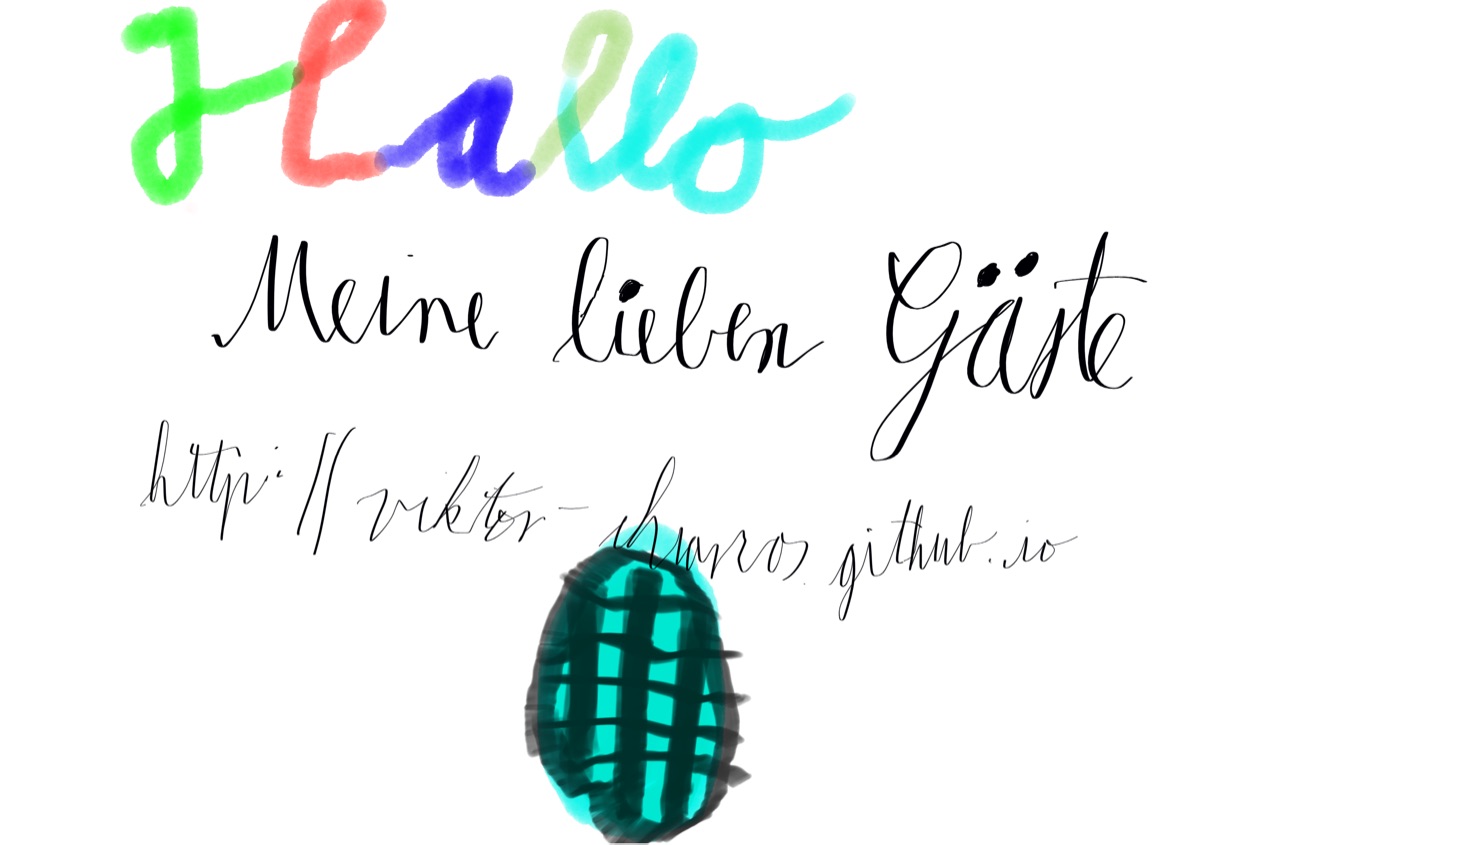 Hallo
Meine lieben Gäste
http://viktor- github.io